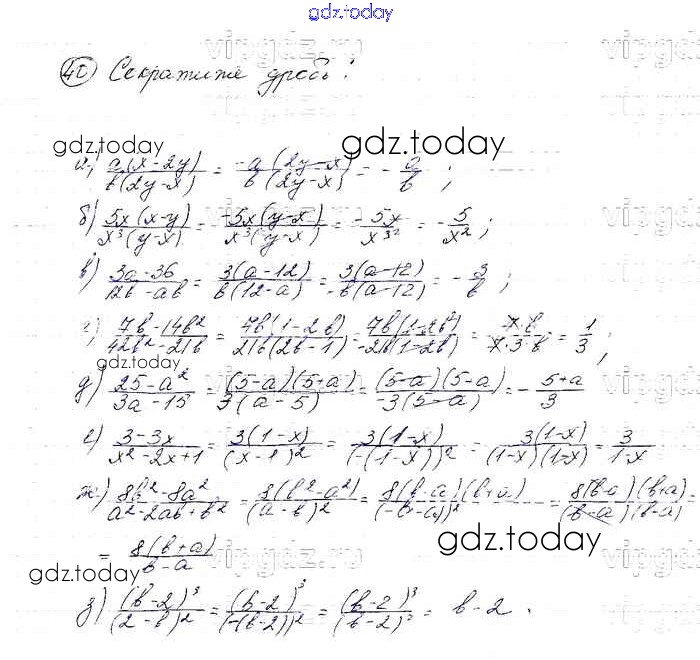 gdz.today
vipgdz.ru
40) Сократите дробь:
gdz.today
gdz.today
а) a(x-2y)/b(2y-x) = -a(2y-x)/b(2y-x) = -a/b;
б) 5x(x-y)/x³(y-x) = -5x(y-x)/x³(y-x) = -5x/x³² = -5/x²;
в) 3a-36/12b-ab = 3(a-12)/b(12-a) = 3(a-12)/-b(a-12) = -3/b;
г) 7b-14b²/42b²-21b = 7b(1-2b)/21b(2b-1) = 7b(1-2b)/-21b(1-2b) = 7·b/7·3·b = 1/3;
gdz.today
д) 25-a²/3a-15 = (5-a)(5+a)/3(a-5) = (5-a)(5-a)/-3(5-a) = -5+a/3
е) 3-3x/x²-2x+1 = 3(1-x)/(x-1)² = 3(1-x)/(-(1-x))² = 3(1-x)/(1-x)(1-x) = 3/1-x
ж) 8b²-8a²/a²-2ab+b² = 8(b²-a²)/(a-b)² = 8(b-a)(b+a)/(-(b-a))² = 8(b-a)(b+a)/(b-a)(b-a) =
= 8(b+a)/b-a
gdz.today
gdz.today
з) (b-2)³/(2-b)² = (b-2)³/(-(b-2))² = (b-2)³/(b-2)² = b-2.